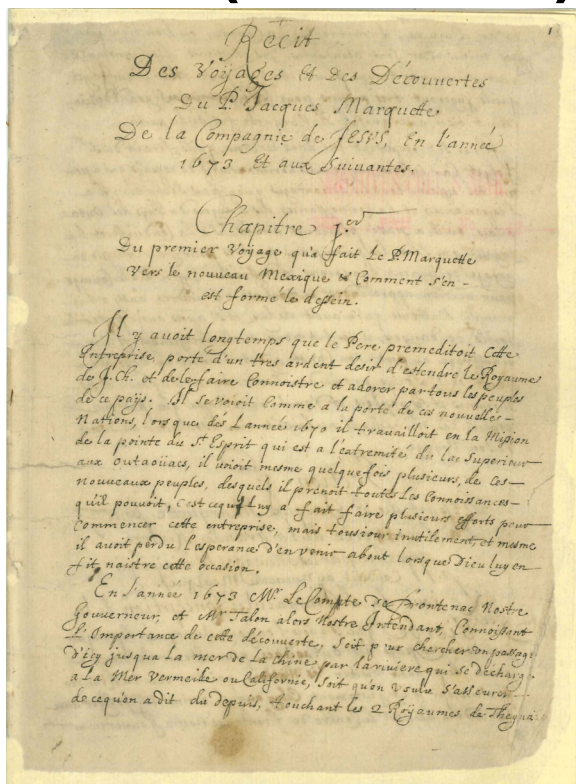 1
Récit
Des Voyages et des Découvertes
Du P. Jacques Marquette
De la Compagnie de JESUS, en l'année
1673 et aux Suivantes.
Chapitre 1.er
Du premier Voyage qu'a fait Le P. Marquette
vers le nouveau Mexique & Comment s'en-
est formé le dessein.
Il y avoit longtemps que le Pere premeditoit Cette
Entreprise, porté d'un tres ardent desir d'estendre le Royaume
de J. Ch. et de le faire Connoistre et adorer par tous les peuples
de ce pays. Il se voioit Comme a la porte de ces nouvelles-
Nations, lors que dés l'année 1670 il travailloit en la Mission
de la pointe du St Esprit qui est a l'extremité du lac Superieur
aux outaoüacs, il voioit mesme quelquefois plusieurs, de ces-
nouveaux peuples, desquels il prenoit toutes les Connoissances-
qu'il pouvoit, c'est ce qui luy a fait faire plusieurs efforts pour
commencer cette entreprise, mais tousiour inutilement, et mesme
il avoit perdu l'esperance d'en venir about lorsque Dieu luy en
fit, naistre cette occasion.
En L'année 1673 Mr. Le Comte De Frontenac Nostre
Gouverneur, et Mr Talon alors Nostre Intendant, Connoissant
L'Importance de cette découverte, soit pour chercher un passage
d'icy jusqua la mer de la Chine, par la riviere qui se décharge
a la Mer Vermeille ou Californie, soit qu'on voulu s'asseurer
de ce qu'on a dit du depuis, touchant les 2 Royaumes de Thegua